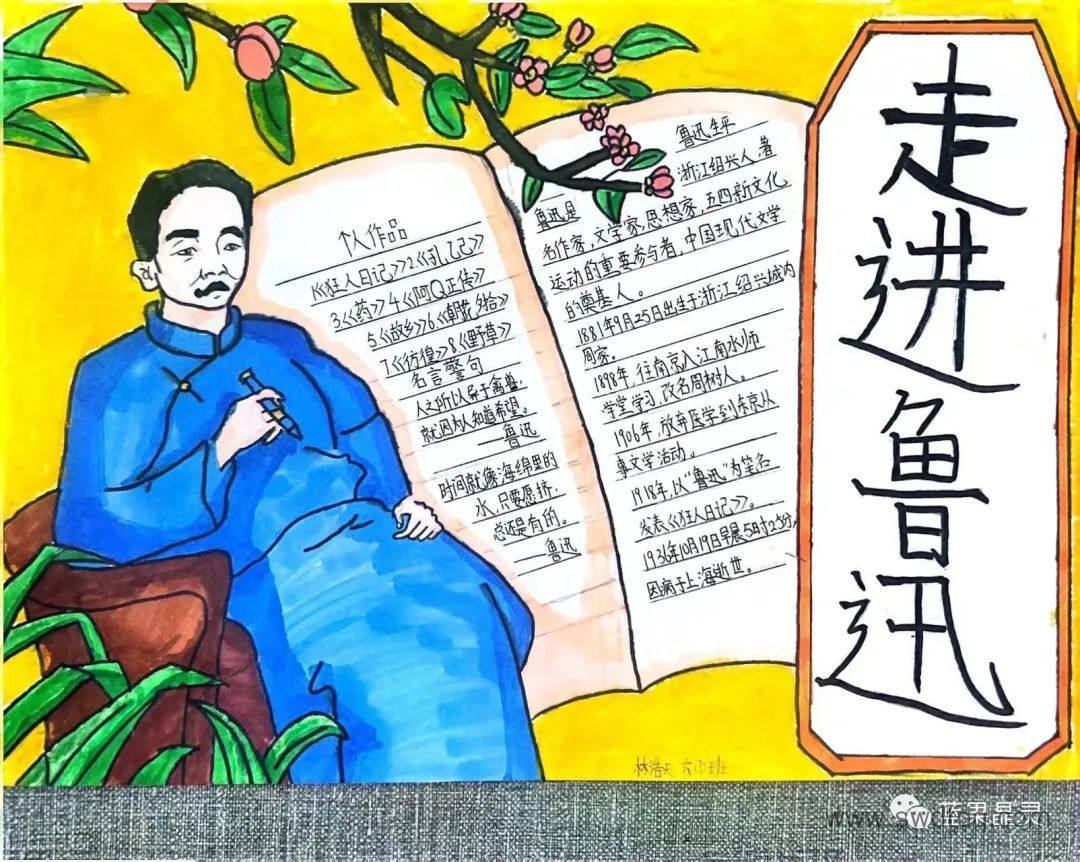 走进鲁迅
个人作品
1《狂人日记》2.《孔乙己》
3.《药》4《阿Q正传》
5《故乡》6《朝花夕拾》
7《彷徨》8.《野草》
名言警句
人之所以异于禽兽,
就因为人知道希望。
——鲁迅
时间就像海绵里的
水,只要愿挤,
总还是有的。
——鲁迅
鲁迅生平
鲁迅是浙江绍兴人,著
名作家,文学家,思想家,五四新文化
运动的重要参与者,中国现代文学
的奠基人。
1881年9月25日出生于浙江绍兴城内
周家。
1898年,往南京入江南水师
学堂学习,改名周树人。
1906年,放弃医学到东京从
事文学活动。
1918年,以“鲁迅”为笔名
发表《狂人日记》。
1936年10月19日早晨5时25分,
因病于上海逝世。
林浩天 六(1)班
蓝果晶灵